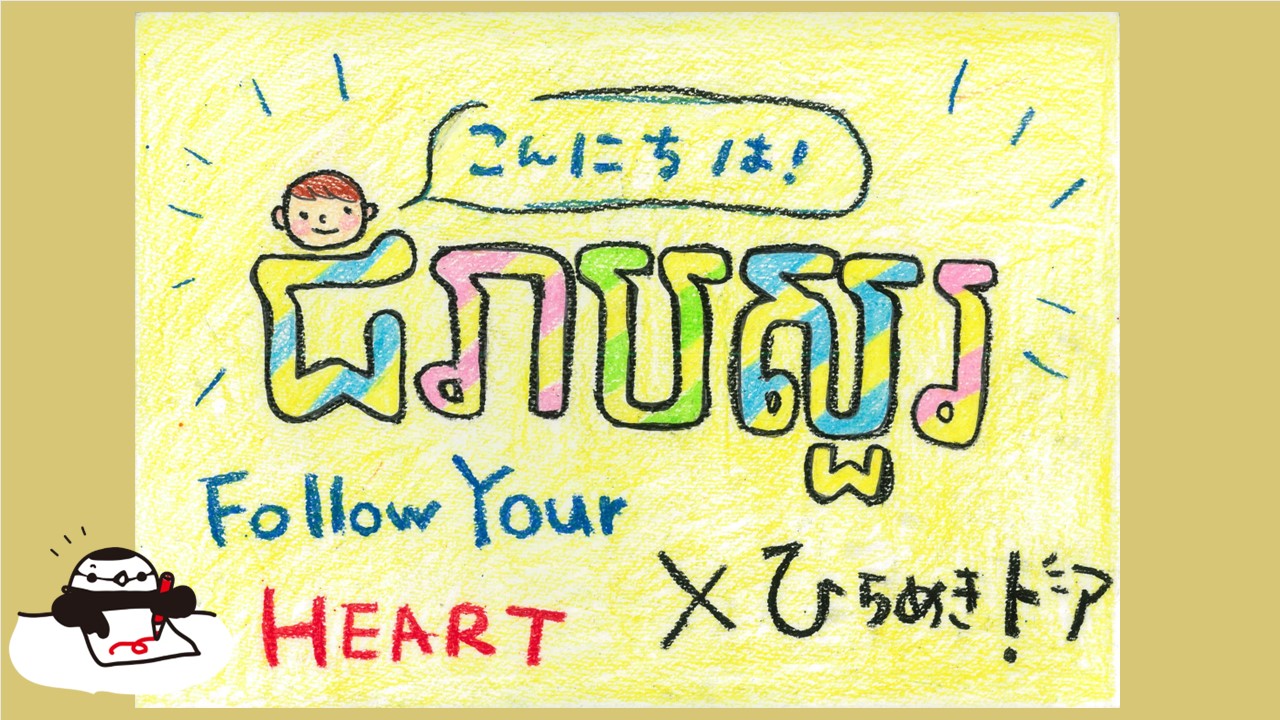 こんにちは!
ជំរាបសួរ
Follow Your
HEART
×ひらめきドア